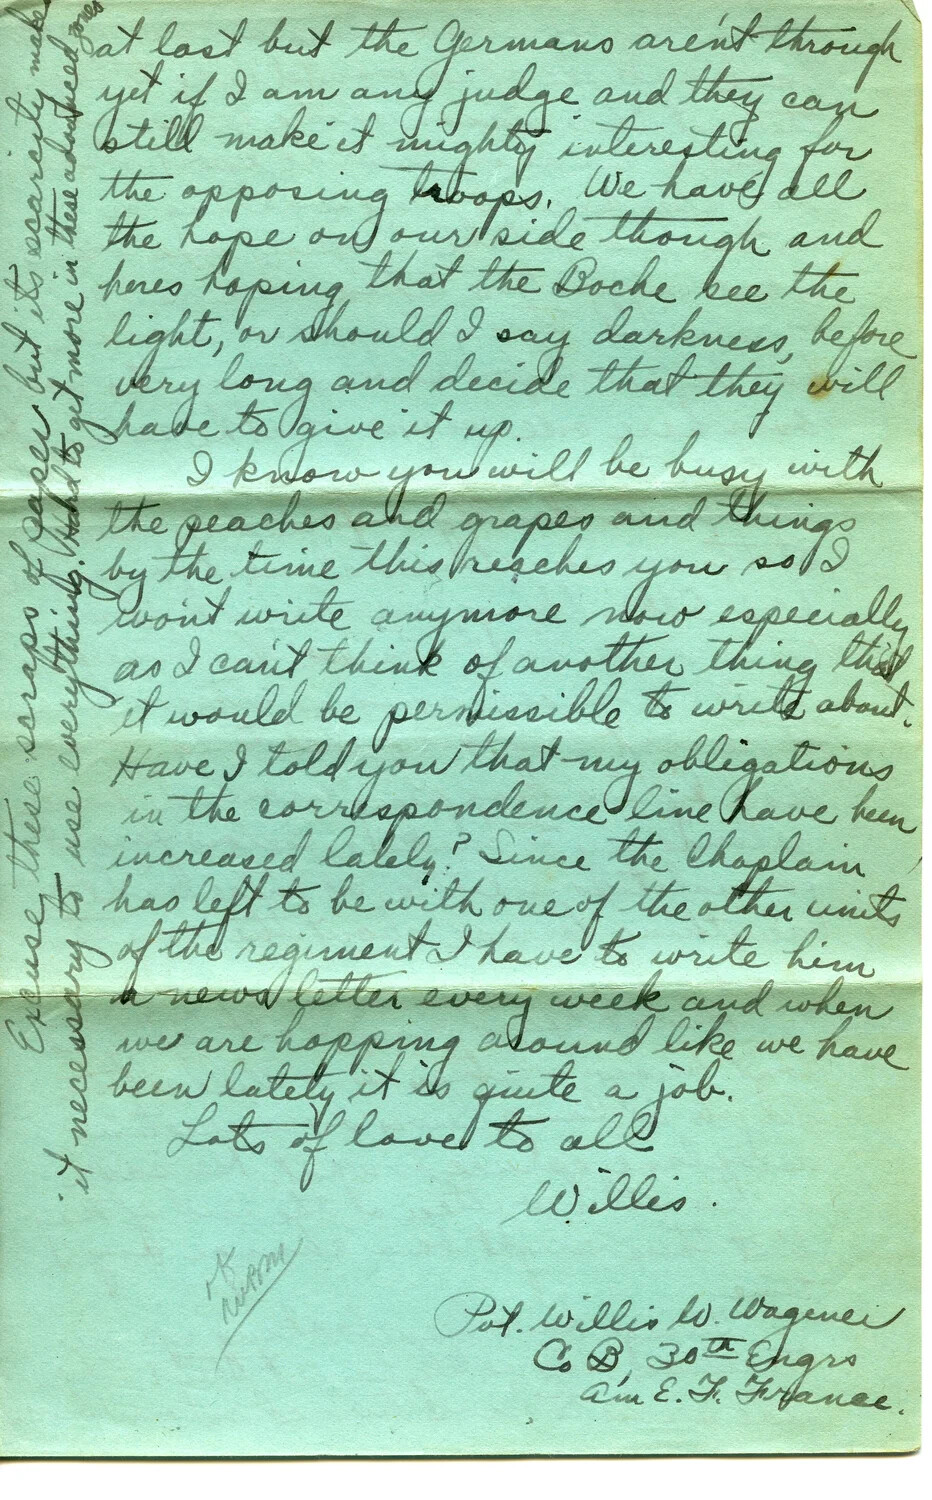 at last but the Germans aren't through
yet if I am any judge and they can
still make it mighty interesting for
the opposing troops. We have all
the hope on our side though and
heres hoping that the Boche see the
light, or should I say darkness, before
very long and decide that they will
have to give it up.
I know you will be busy with
the peaches and grapes and things
by the time this reaches you so I
won't write anymore now especially
as I can't think of another thing that
it would be permissible to write about.
Have I told you that my obligations
in the correspondence line have been
increased lately? Since the Chaplain
has left to be with one of the other units
of the regiment I have to write him
a news letter every week and when
we are hopping around like we have
been lately it is quite a job.
Lots of love to all
Willis.
OK
Pvt. Willis W. Wagener
Co B, 30th Engrs
Am E. F. France.
Excuse these scraps of paper but its scarcity make
it necessary to use everything. Hard to get more in these advanced zones